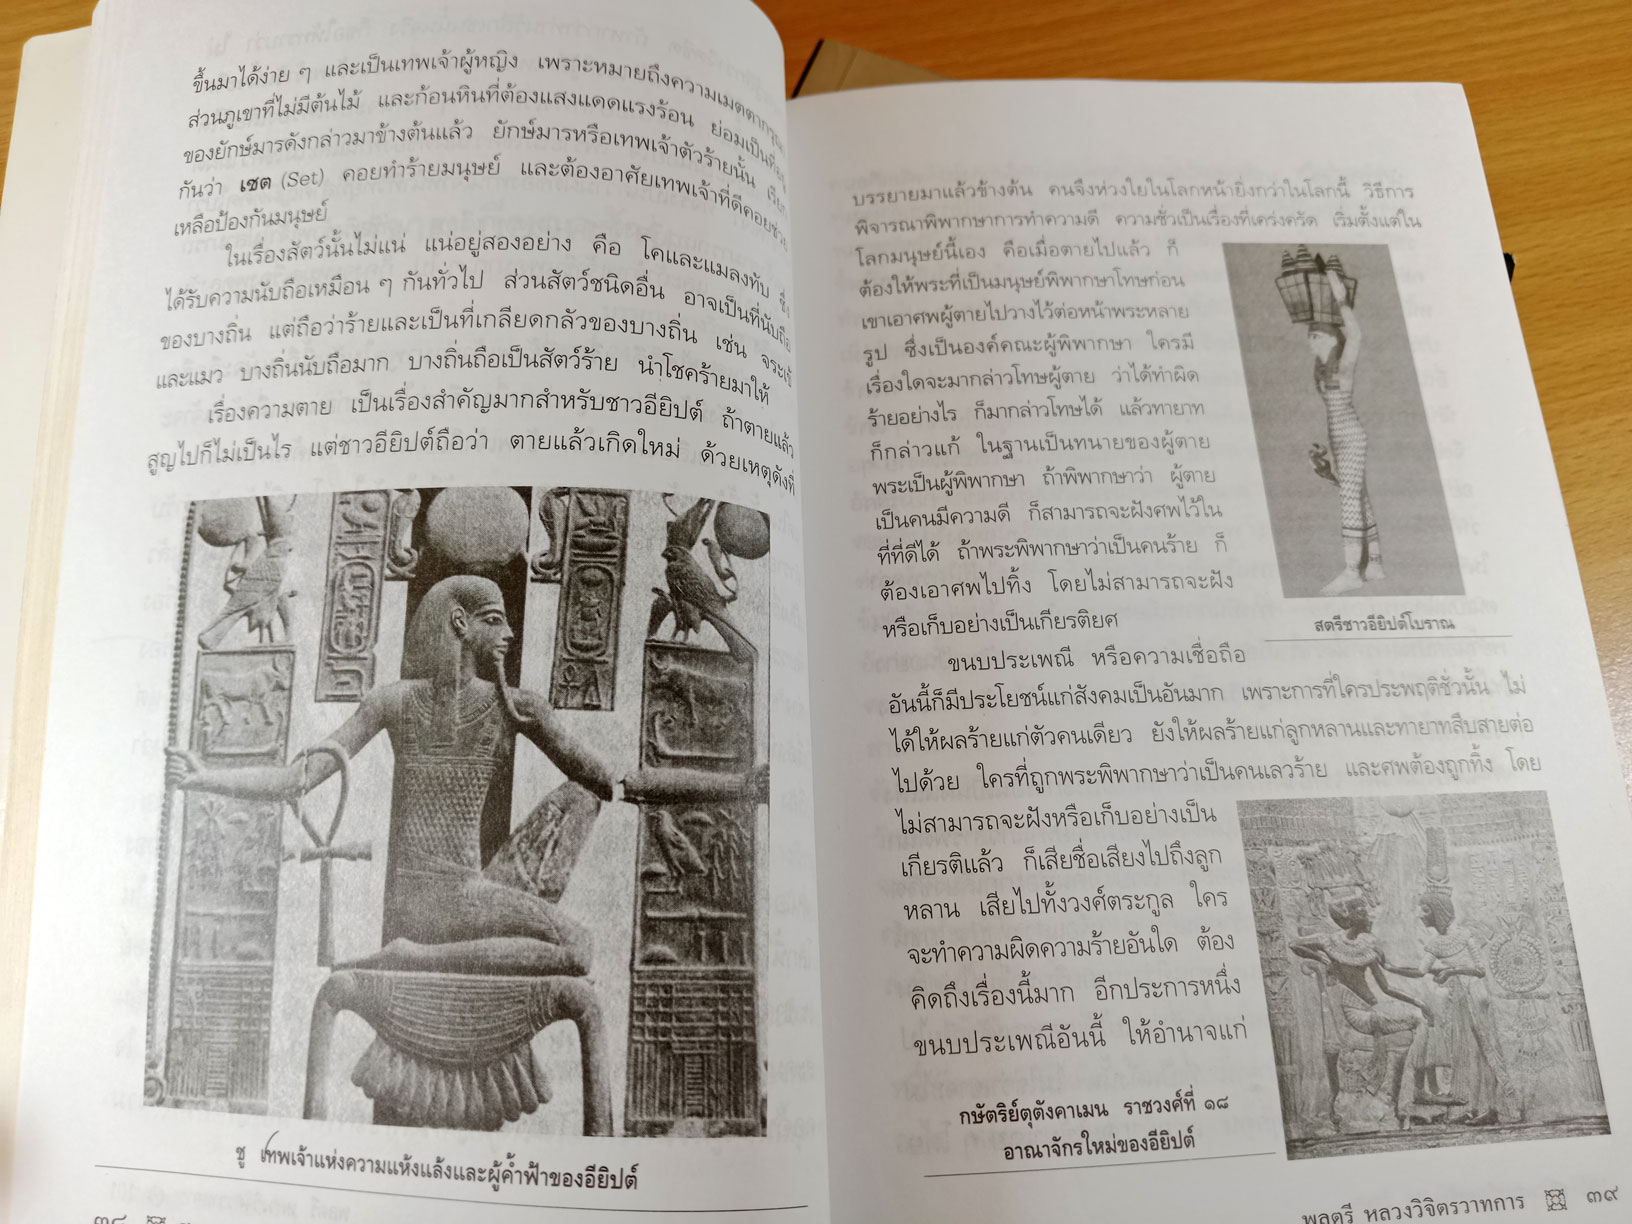 ขึ้นมาได้ง่าย ๆ และเป็นเทพเจ้าผู้หญิง เพราะหมายถึงความเมตตากรุณา
ส่วนภูเขาที่ไม่มีต้นไม้ และก้อนหินที่ต้องแสงแดดแรงร้อน ย่อมเป็นที่อยู่
ของยักษ์มารดังกล่าวมาข้างต้นแล้ว ยักษ์มารหรือเทพเจ้าตัวร้ายนั้น เรียก
กันว่า เซต (Set) คอยทำร้ายมนุษย์ และต้องอาศัยเทพเจ้าที่ดีคอยช่วย
เหลือป้องกันมนุษย์
ในเรื่องสัตว์นั้นไม่แน่ แน่อยู่สองอย่าง คือ โคและแมลงทับ ซึ่ง
ได้รับความนับถือเหมือน ๆ กันทั่วไป ส่วนสัตว์ชนิดอื่น อาจเป็นที่นับถือ
ของบางถิ่น แต่ถือว่าร้ายและเป็นที่เกลียดกลัวของบางถิ่น เช่น จระเข้
และแมว บางถิ่นนับถือมาก บางถิ่นถือเป็นสัตว์ร้าย นำโชคร้ายมาให้
เรื่องความตาย เป็นเรื่องสำคัญมากสำหรับชาวอียิปต์ ถ้าตายแล้ว
สูญไปก็ไม่เป็นไร แต่ชาวอียิปต์ถือว่า ตายแล้วเกิดใหม่ ด้วยเหตุดังที่
ชู เทพเจ้าแห่งความแห้งแล้งและผู้ค้ำฟ้าของอียิปต์
๓๘
บรรยายมาแล้วข้างต้น คนจึงห่วงใยในโลกหน้ายิ่งกว่าในโลกนี้ วิธีการ
พิจารณาพิพากษาการทำความดี ความชั่วเป็นเรื่องที่เคร่งครัด เริ่มตั้งแต่ใน
โลกมนุษย์นี้เอง คือเมื่อตายไปแล้ว ก็
ต้องให้พระที่เป็นมนุษย์พิพากษาโทษก่อน
เขาเอาศพผู้ตายไปวางไว้ต่อหน้าพระหลาย
รูป ซึ่งเป็นองค์คณะผู้พิพากษา ใครมี
เรื่องใดจะมากล่าวโทษผู้ตาย ว่าได้ทำผิด
ร้ายอย่างไร ก็มากล่าวโทษได้ แล้วทายาท
ก็กล่าวแก้ ในฐานเป็นทนายของผู้ตาย
พระเป็นผู้พิพากษา ถ้าพิพากษาว่า ผู้ตาย
เป็นคนมีความดี ก็สามารถจะฝังศพไว้ใน
ที่ที่ดีได้ ถ้าพระพิพากษาว่าเป็นคนร้าย ก็
ต้องเอาศพไปทิ้ง โดยไม่สามารถจะฝัง
หรือเก็บอย่างเป็นเกียรติยศ
สตรีชาวอียิปต์โบราณ
ขนบประเพณี หรือความเชื่อถือ
อันนี้ก็มีประโยชน์แก่สังคมเป็นอันมาก เพราะการที่ใครประพฤติชั่วนั้น ไม่
ได้ให้ผลร้ายแก่ตัวคนเดียว ยังให้ผลร้ายแก่ลูกหลานและทายาทสืบสายต่อ
ไปด้วย ใครที่ถูกพระพิพากษาว่าเป็นคนเลวร้าย และศพต้องถูกทิ้ง โดย
ไม่สามารถจะฝังหรือเก็บอย่างเป็น
เกียรติแล้ว ก็เสียชื่อเสียงไปถึงลูก
หลาน เสียไปทั้งวงศ์ตระกูล ใคร
จะทำความผิดความร้ายอันใด ต้อง
คิดถึงเรื่องนี้มาก อีกประการหนึ่ง
ขนบประเพณีอันนี้ ให้อำนาจแก่
กษัตริย์ตุตังคาเมน ราชวงศ์ที่ ๑๘
อาณาจักรใหม่ของอียิปต์
พลตรี หลวงวิจิตรวาทการ ๓๙